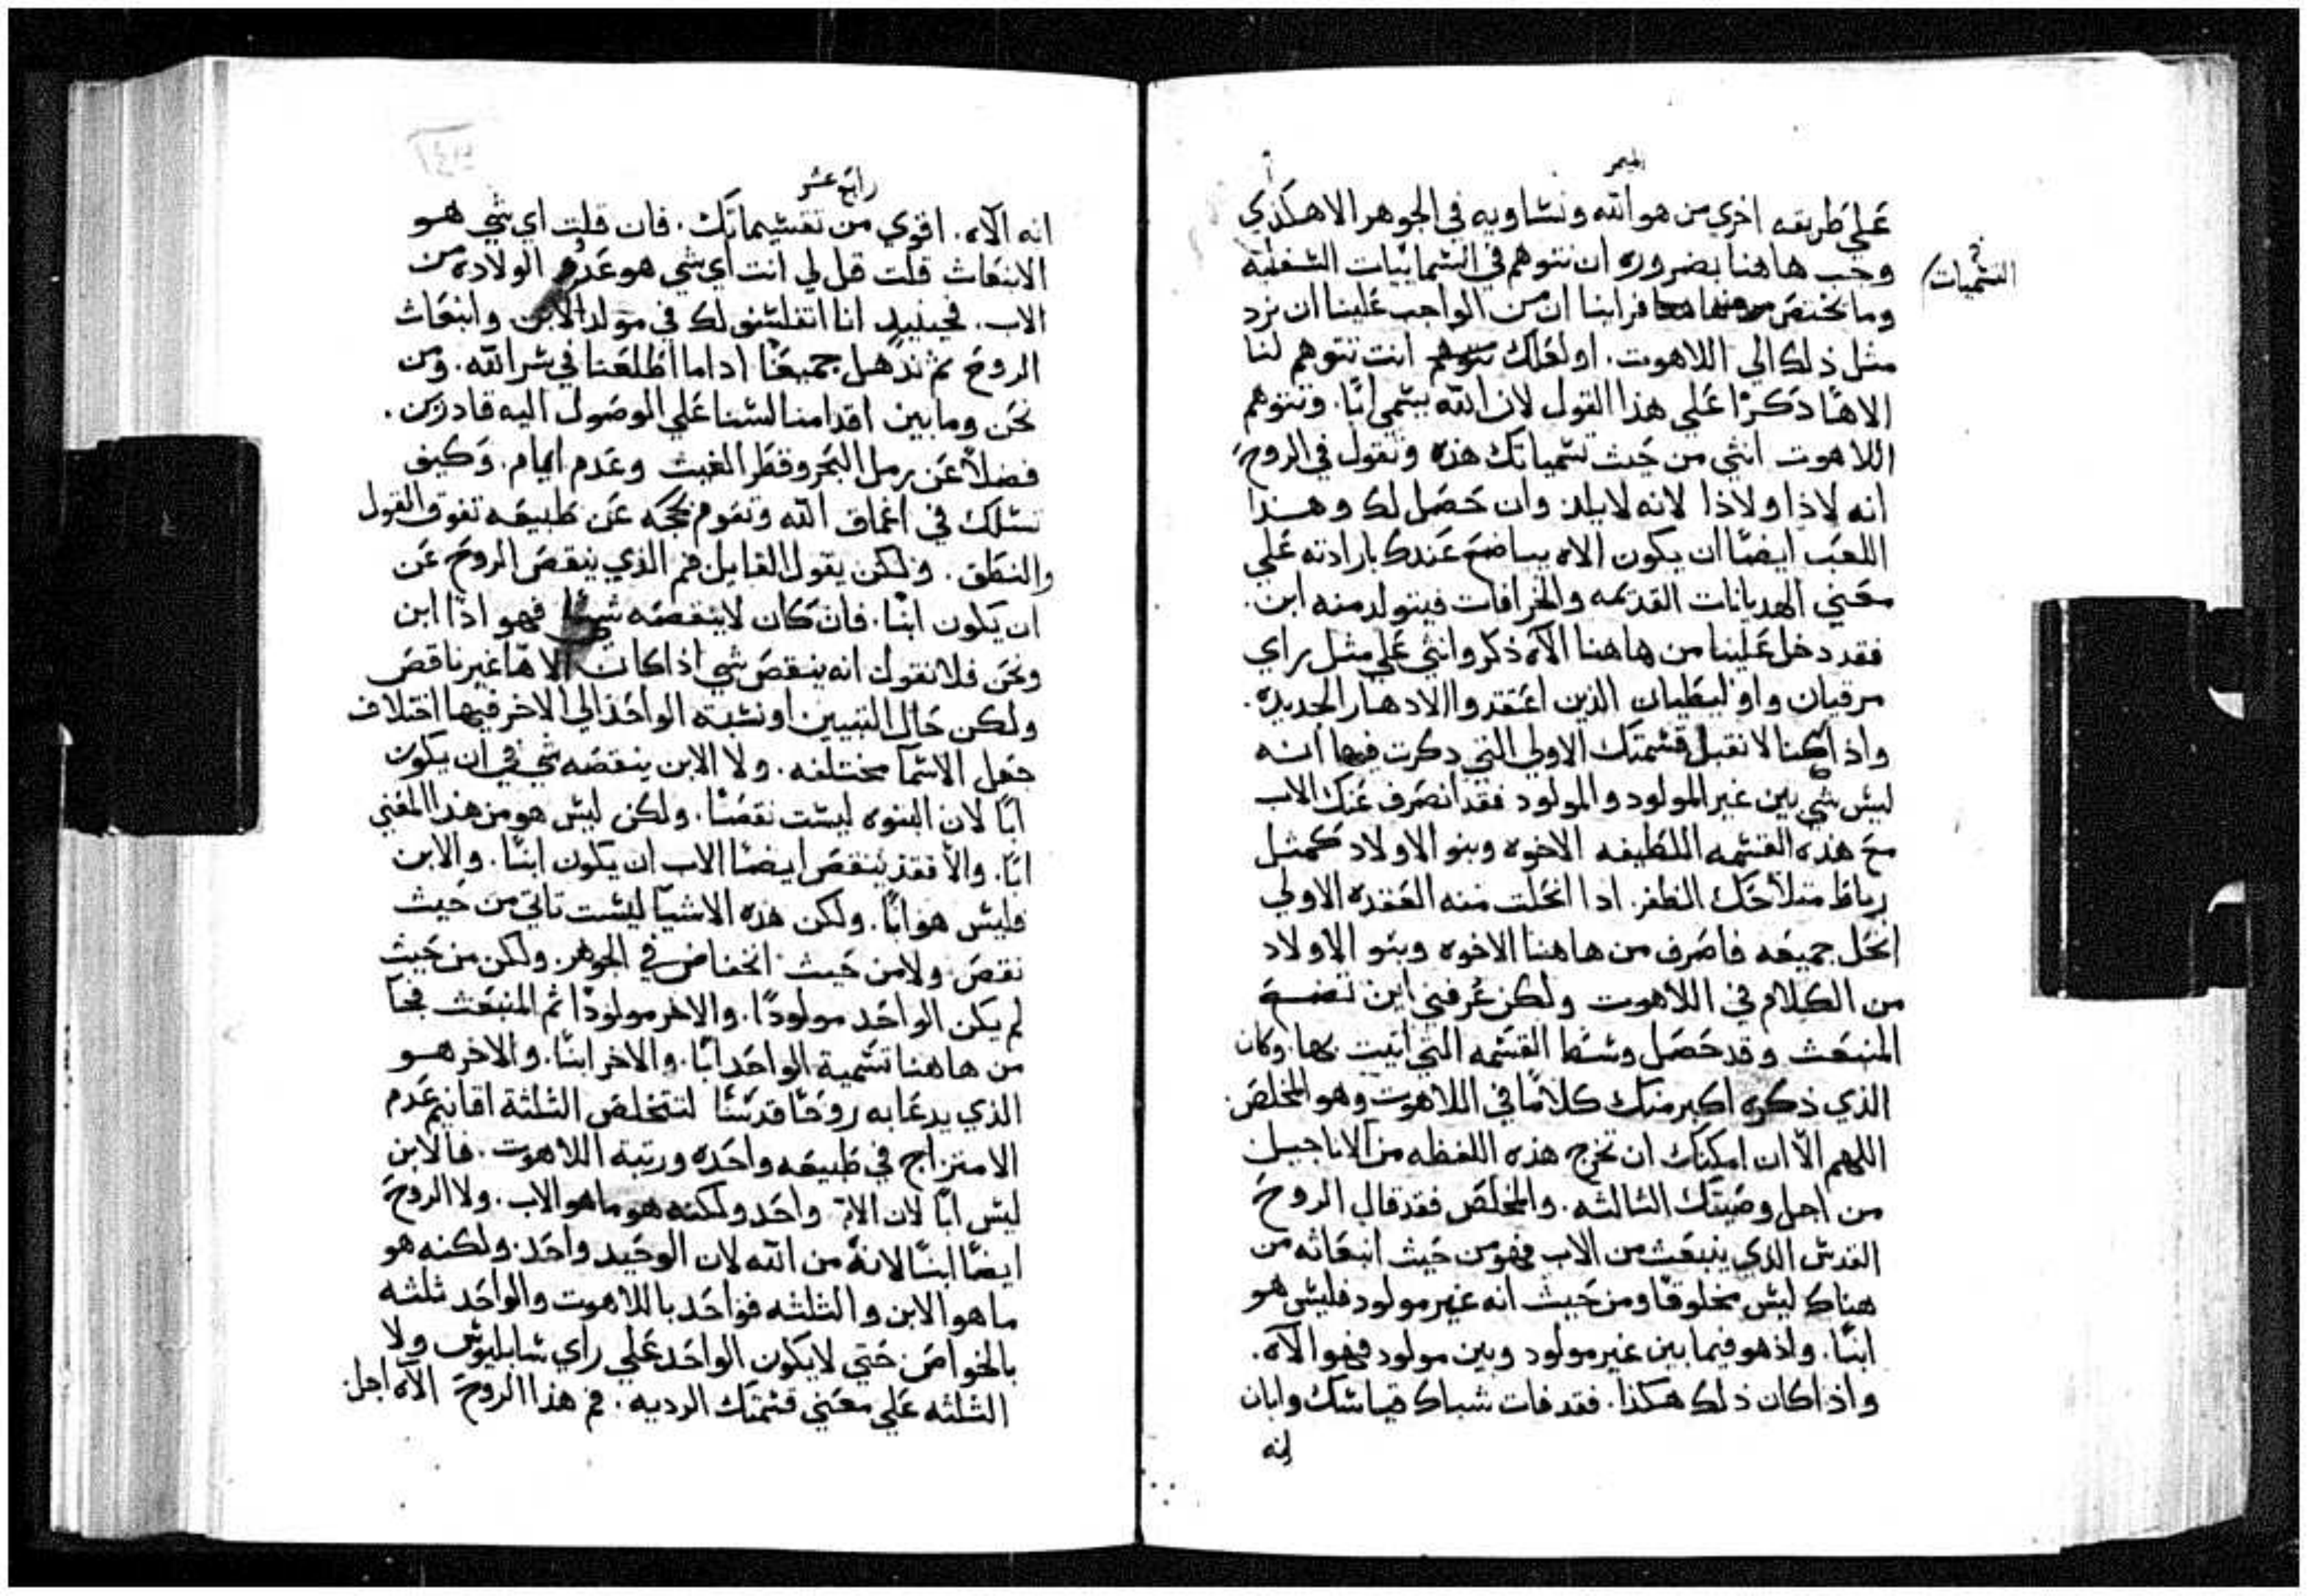 الميمر
علي طريقه اخري من هو الله ونساويه في الجوهر الاهكذي
وجب هاهنا بضروره ان نتوهم في السمائيات السفليه
التسميات
وما يختص فراينا ان من الواجب علينا ان نرد
مثل ذلك الي اللاهوت. اولعلك انت تتوهم لنا
الاهًا ذكرًا علي هذا القول لان الله يسمي ابًا. وتتوهم
اللاهوت انثي من حيث تسمياتك هذه وتقول في الروح
انه لاذا ولاذا لانه لا يلد وان حصل لك وهذا
اللعب ايضًا ان يكون الاه يباضع عندك بارادته علي
معني الهديانات القديمه والخرافات فيتولد منه ابن.
فقد دخل علينا من هاهنا الآه ذكر وانثي علي مثل راي
مرقيان واوليطيان الذين اعتقدوا الادهار الجديده.
واذ اكنا لا نقبل قسمتك الاولي التي دكرت فيها انه
ليس شي بين غير المولود والمولود فقد انصرف عنك الاب
مع هذه القسمه اللطيفه الاخوه وبنو الاولاد كمثل
رباط متلاحك الظفر. ادا انحلت منه العقده الاولي
انحل جميعه فاصرف من هاهنا الاخوه وبنو الاولاد
من الكلام في اللاهوت ولكن عرفني اين تضع
المنبعث وقد حصل وسط القسمه التي اتيت بها. وكان
الذي ذكره اكبر منك كلامًا في اللاهوت وهو المخلص.
اللهم الاّ ان امكنك ان تخرج هذه اللفظه من الاناجيل
من اجل وصيتك الثالثه. والمخلص فقد قال الروح
القدس الذي ينبعث من الاب فهو من حيث انبعاثه من
هناك ليس مخلوقًا ومن حيث انه غير مولود فليس هو
ابنًا. واذ هو فيما بين غير مولود وبين مولود فهو الآه.
واذ اكان ذلك هكذا. فقد فات شباك قياسك وابان
انه
رابع عشر
انه الآه. اقوي من تقسيماتك. فان قلت اي شي هو
الانبعاث قلت قل لي انت اي شي هو عدم الولاده من
الاب. فحينيدٍ انا اتفلسف لك في مولد الابن وانبعاث
الروح ثم ندهل جميعًا اداما اطلعنا في سر الله. ومن
نحن وما بين اقدامنا لسنا علي الوصول اليه قادرين.
فضلاً عن رمل البحر وقطر الغيث وعدم ايام. وكيف
نسلك في اعماق الله ونقوم بحجه عن طبيعه تفوق القول
والنطق. ولكن يقول القايل فم الذي ينقص الروح عن
ان يكون ابنًا. فان كان لا ينقصه شيًا فهو اذًا ابن
ونحن فلا نقول انه ينقص شي اذ اكان الاهًا غير ناقص
ولكن حال التبيين او نسبة الواحد الي الاخر فيها اختلاف
جعل الاسمآ مختلفه. ولا الابن ينقصه شي في ان يكون
ابًا لان البنوه ليست نقصًا. ولكن ليس هو من هذا المعني
ابًا. والاّ فقد ينقص ايضًا الاب ان يكون ابنًا. والابن
فليس هو ابًا. ولكن هذه الاشيآ ليست تاتي من حيث
نقص ولا من حيث انخفاض في الجوهر. ولكن من حيث
لم يكن الواحد مولودًا. والاخر مولودًا ثم المنبعث فجآ
من هاهنا تسمية الواحد ابًا. والاخر ابنًا. والاخر هو
الذي يدعا به روحًا قدسًا لتتخلص الثلثة اقانيم عدم
الامتزاج في طبيعه واحده ورتبة اللاهوت. فالابن
ليس ابًا لان الاب واحد ولكنه هو ما هو الاب. ولا الروح
ايضًا ابنًا لانه من الله لان الوحيد واحد. ولكنه هو
ما هو الابن والثلثه فواحد باللاهوت والواحد ثلثه
بالخواص. حتي لا يكون الواحد علي راي سابليوس ولا
الثلثه علي معني قسمتك الرديه. فم هذا الروح الآه اجل